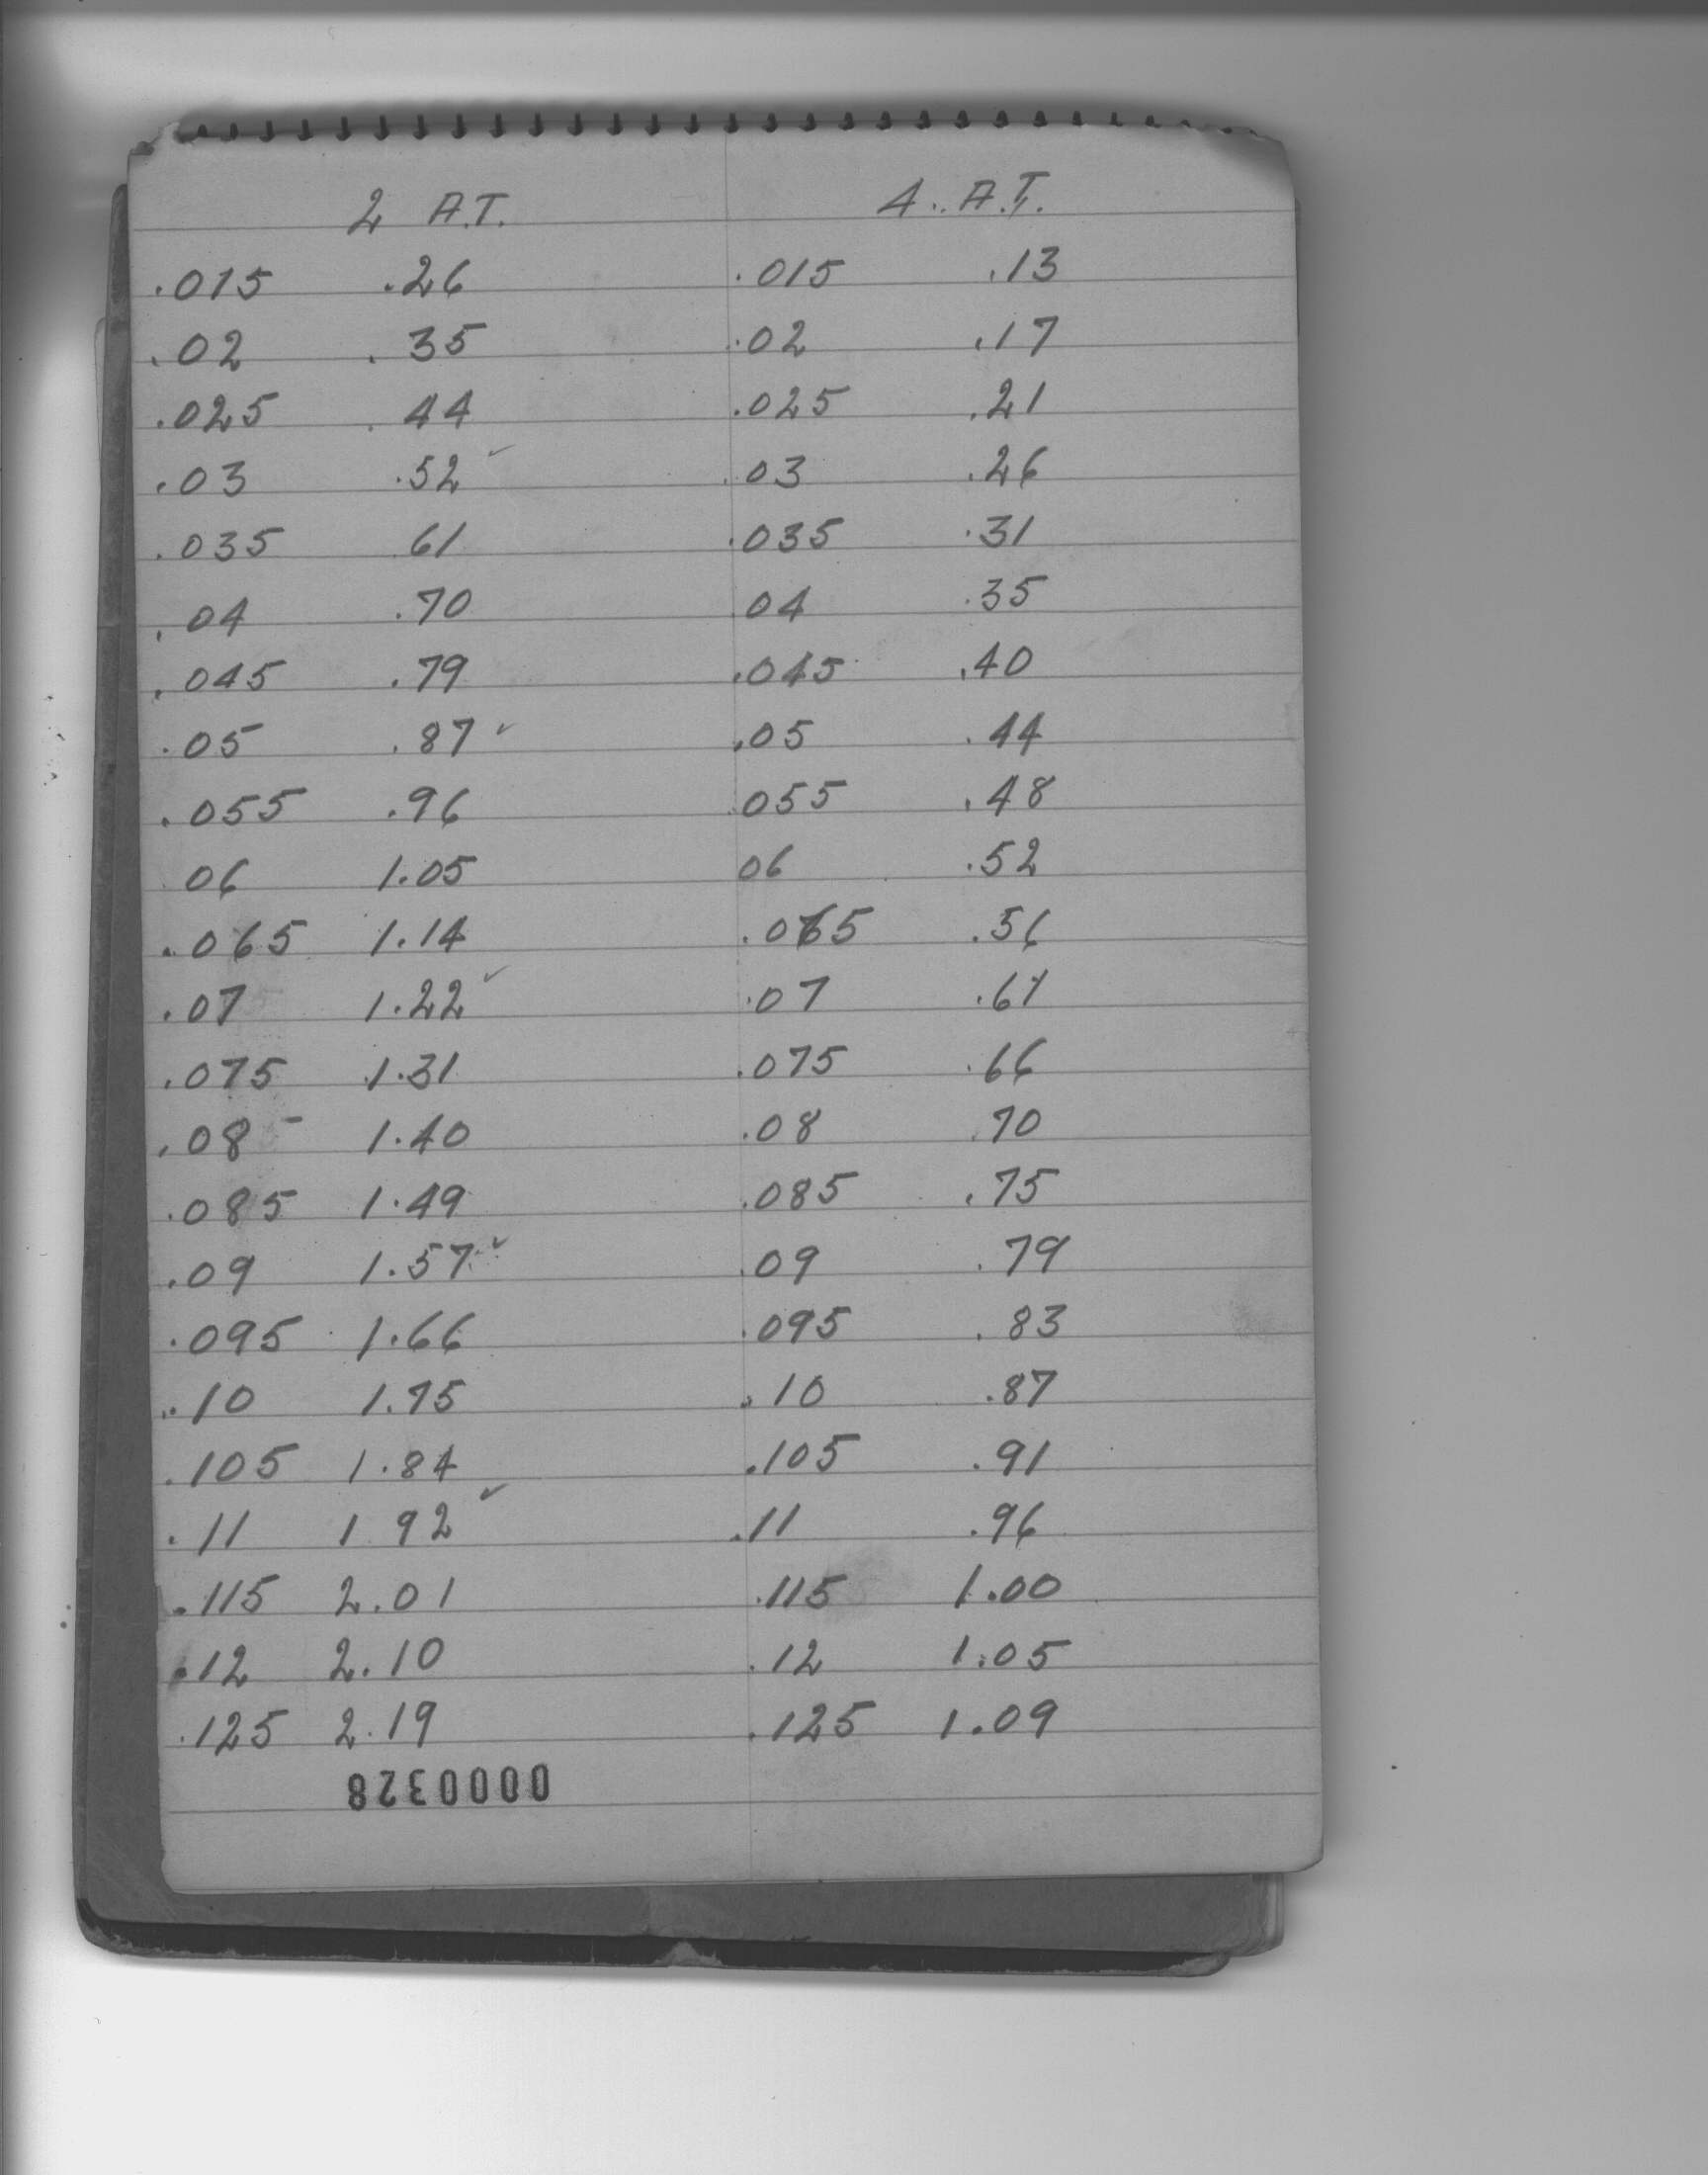 2 A.T. 4 A.T.
.015 .26 .015 .13
.02 .35 .02 .17
.025 .44 .025 .21
.03 .52 ✓ .03 .26
.035 61 .035 .31
.04 .70 04 .35
.045 .79 .045 .40
.05 .87 ✓ .05 .44
.055 .96 055 .48
06 1.05 06 .52
.065 1.14 .065 .56
.07 1.22 ✓ .07 .61
.075 1.31 .075 .66
.08 - 1.40 .08 .70
.085 1.49 .085 .75
.09 1.57 ✓ .09 .79
.095 1.66 .095 .83
.10 1.75 .10 .87
.105 1.84 .105 .91
.11 1 92 ✓ .11 .96
.115 2.01 .115 1.00
.12 2.10 .12 1.05
.125 2.19 .125 1.09
0000328